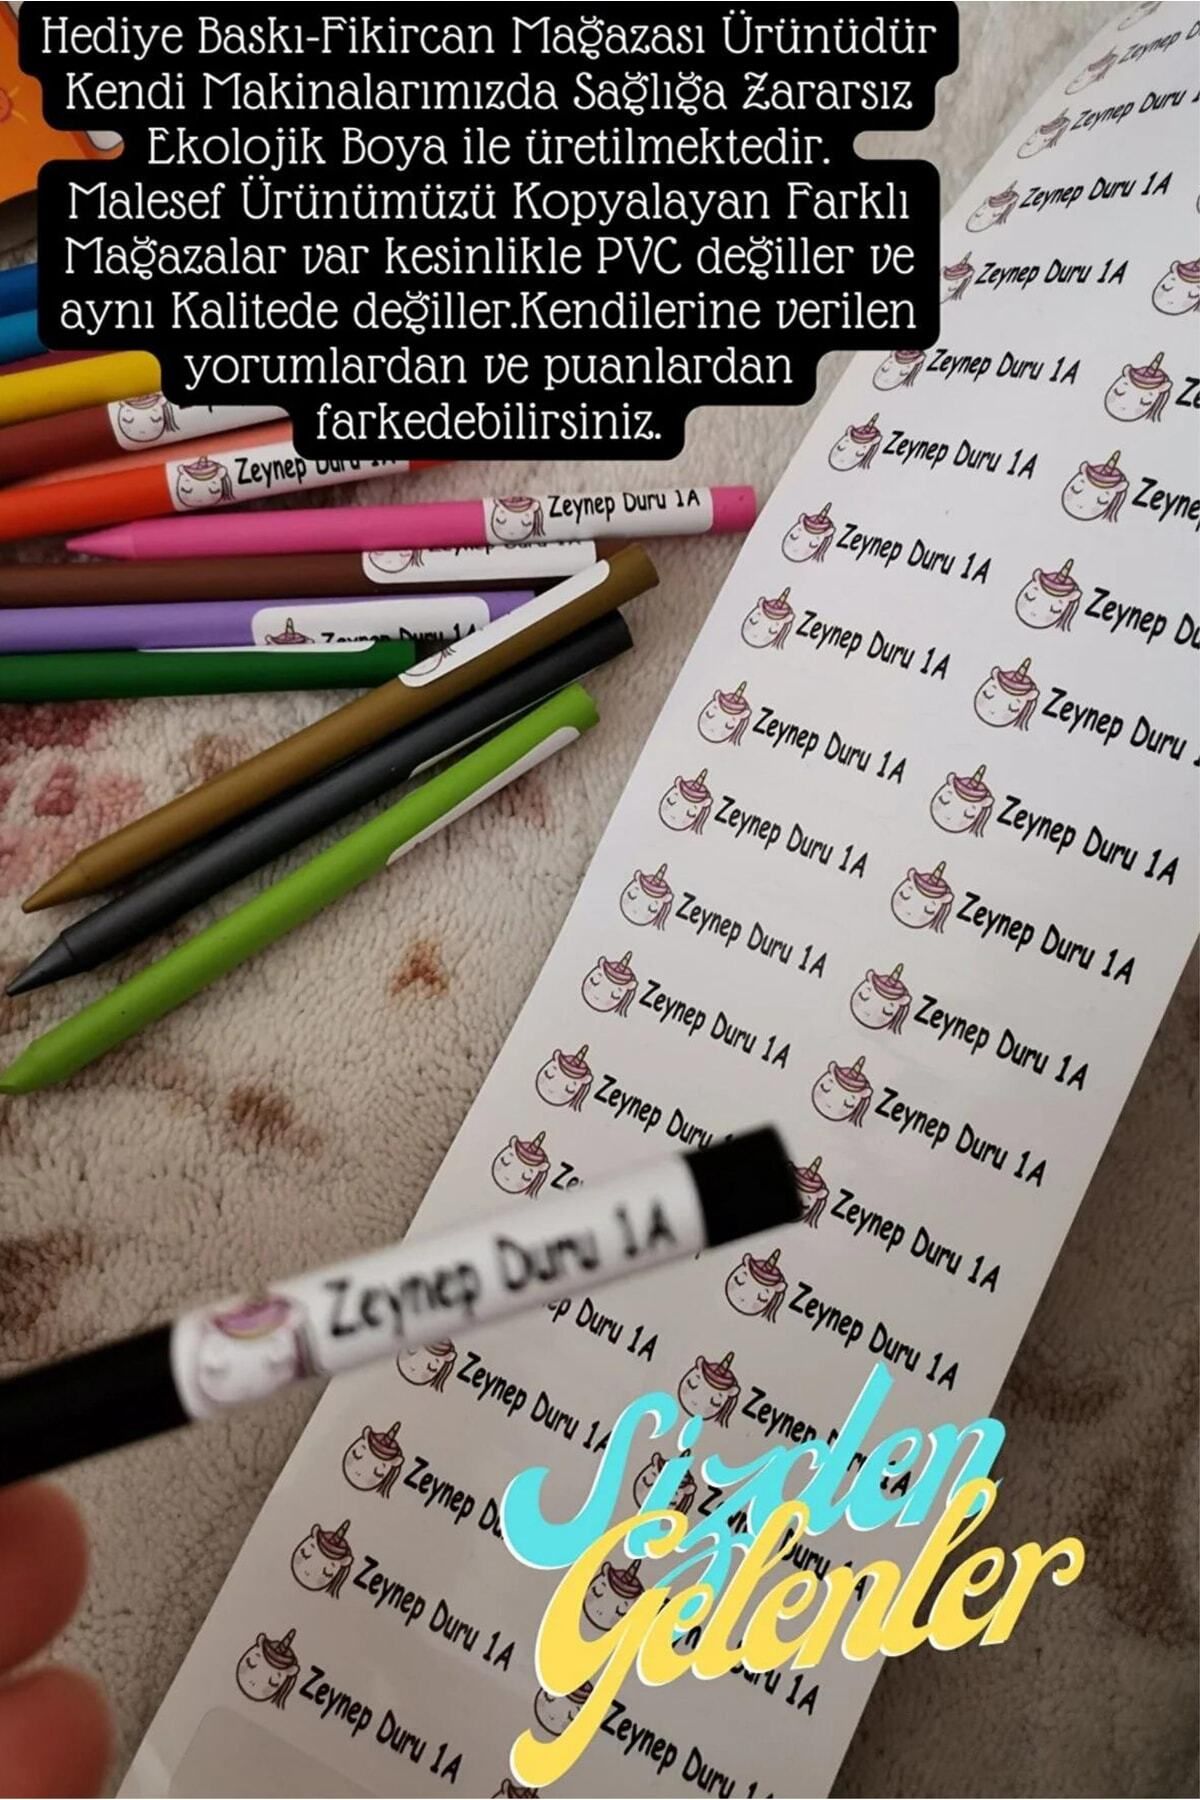 Hediye Baskı-Fikircan Mağazası Ürünüdür
Kendi Makinalarımızda Sağlığa Zararsız
Ekolojik Boya ile üretilmektedir.
Malesef Ürünümüzü Kopyalayan Farklı
Mağazalar var kesinlikle PVC değiller ve
aynı Kalitede değiller.Kendilerine verilen
yorumlardan ve puanlardan
farkedebilirsiniz.
Zeynep Duru 1A
Zeynep Duru 1A
Zeynep Duru 1A
Zeynep Duru
Zeynep Duru 1A
Zeynep Duru 1A
Zeynep Duru 1A
Zeynep Duru 1A
Zeynep Duru 1A
Zeynep Duru 1A
Zeynep Duru 1A
Zeynep Duru 1A
Zeynep Duru 1A
Zeynep Duru 1A
Zeynep Duru 1A
Zeynep Duru
Zeynep Duru 1A
Zeynep Duru 1A
Zeynep Duru 1A
Zeynep Duru 1A
Zeynep Duru 1A
Zeynep Duru 1A
Zeynep Duru 1A
Zeynep Duru 1A
Duru 1A
Zeynep Duru 1A
Zeynep
Zeynep Duru 1A
Zeynep Duru 1A
Zeynep Duru
Sizden
Gelenler